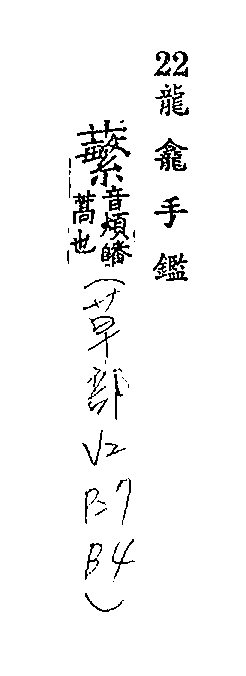 22龍龕手鑑
蘩音煩皤
蒿也
(草部V2
B4)